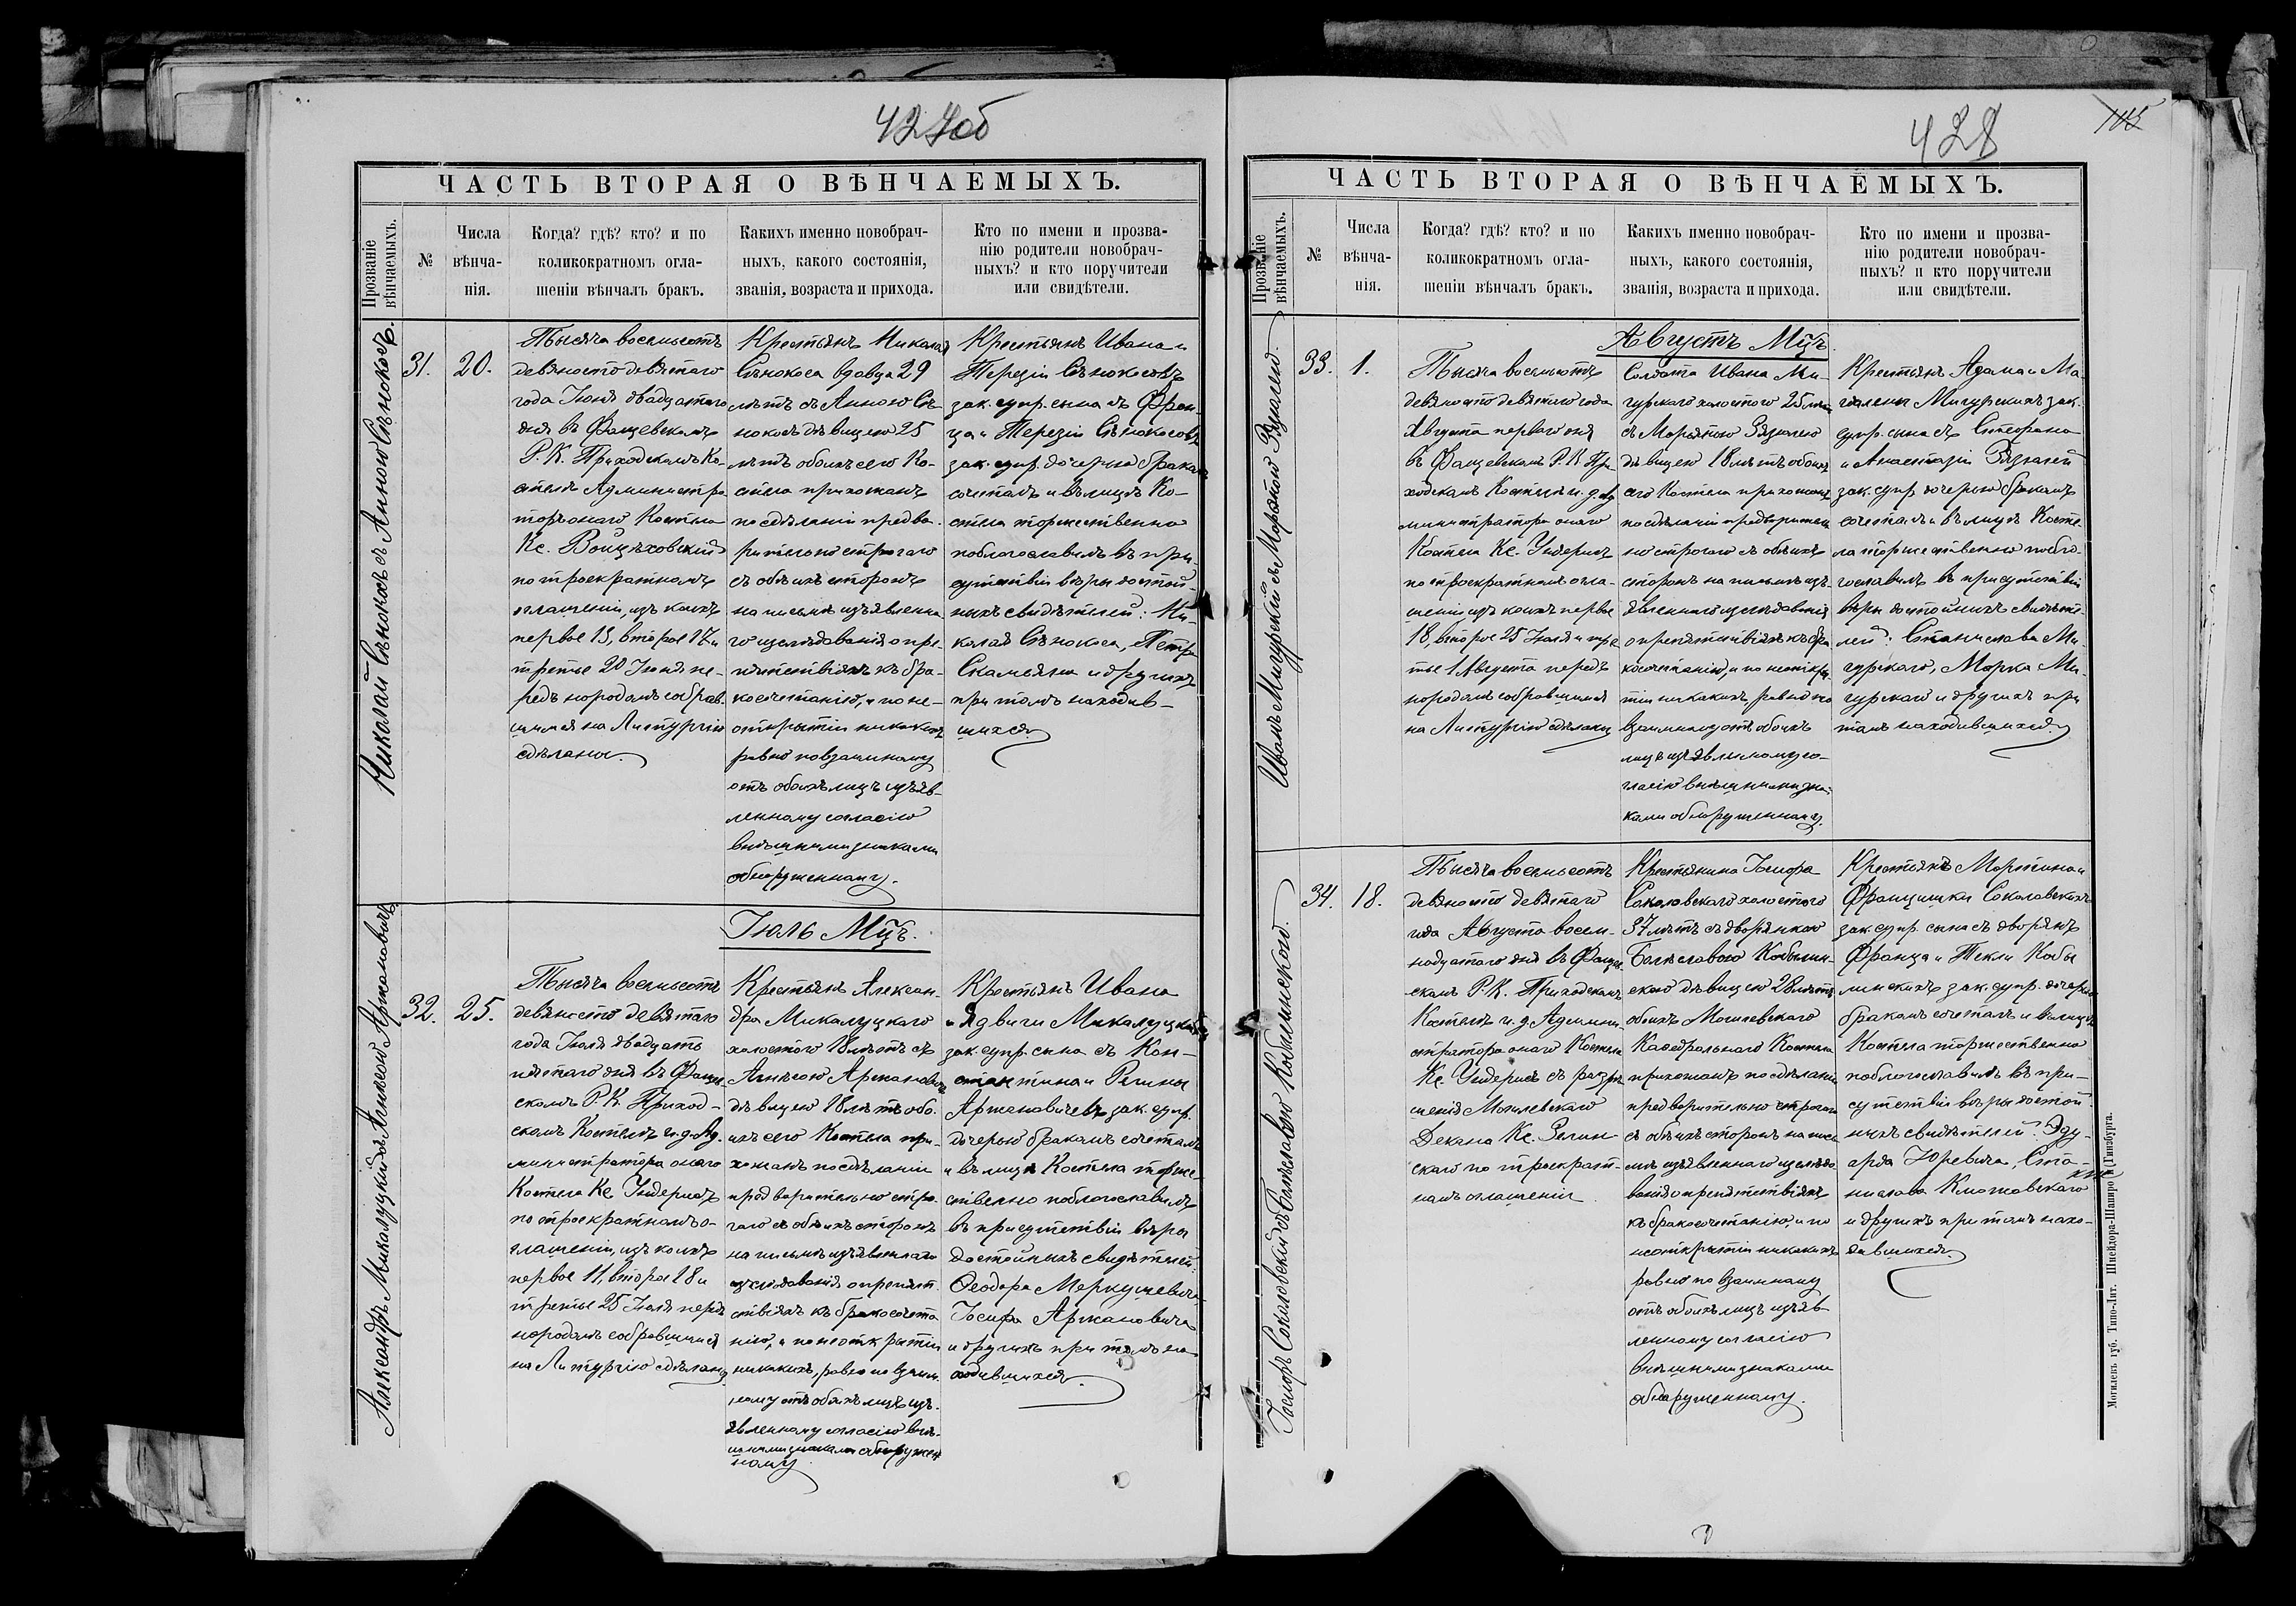 427об
ЧАСТЬ ВТОРАЯ О ВѢНЧАЕМЫХЪ.
Прозваніе
вѣнчаемыхъ.
№
Числа
вѣнча-
нія.
Когда? гдѣ? кто? и по
коликократномъ огла-
шеніи вѣнчалъ бракъ.
Какихъ именно новобрач-
ныхъ, какого состоянія,
званія, возраста и прихода.
Кто по имени и прозва-
нію родители новобрач-
ныхъ? и кто поручители
или свидѣтели.
Николай Сѣнокосъ съ Анною Сѣнокосъ.
31.
20.
Тысяча восемьсотъ
девяносто девятаго
года Іюня двадцатаго
дня въ Фащевскомъ
Р. К. Приходскомъ Ко-
стелѣ Администра
торъ онаго Костела
Кс. Войцѣховскій
по троекратномъ
оглашеніи, изъ коихъ
первое 13, второе 17 и
третье 20 Іюня пе-
редъ народомъ собрав-
шимся на Литургію
сдѣланы.
Крестьянъ Николая
Сѣнокоса вдовца 29
лѣтъ съ Анною Сѣ-
нокосъ дѣвицею 25
лѣтъ обоихъ сего Ко-
стела прихожанъ
по сдѣланіи предва-
рительно строгаго
съ обѣихъ сторонъ
на письмѣ изъявленна
го изслѣдованія о пре-
пятствіяхъ къ бра-
косочетанію, и по не-
открытіи никакихъ
равно по взаимному
отъ обоихъ лицъ изъяв-
ленному согласію
внѣшними знаками
обнаруженному.
Крестьянъ Ивана и
Терезіи Сѣнокосовъ
зак. супр. сына съ Фран-
ца и Терезіи Сѣнокосовъ
зак. супр. дочерью бракомъ
сочеталъ и въ лицѣ Ко-
стела торжественно
поблагословилъ въ при-
сутствіи вѣры достой-
ныхъ свидѣтелей: Ни-
колая Сѣнокоса, Петра
Скамьяна и другихъ
при томъ находив-
шихся.
Іюль Мцъ.
Александръ Микалуцкій съ Агнѣсою Аржановичъ
32.
25.
Тысяча восемьсотъ
девяносто девятаго
года Іюля двадцать
пятаго дня въ Фащев
скомъ Р. К. Приход-
скомъ Костелѣ и. д. Ад-
министратора онаго
Костела Кс. Ундерисъ
по троекратномъ о-
глашеніи, изъ коихъ
первое 11, второе 18 и
третье 25 Іюля передъ
народомъ собравшимся
на Литургію сдѣланы
Крестьянъ Алексан-
дра Микалуцкаго
холостого 18 лѣтъ съ
Агнѣсою Аржановичъ
дѣвицею 18 лѣтъ обо-
ихъ сего Костела при-
хожанъ по сдѣланіи
предварительно стро-
гаго съ обѣихъ сторонъ
на письмѣ изъявленнаго
изслѣдованія о препят-
ствіяхъ къ бракосочета
нію, и по неоткрытіи
никакихъ, равно по взаим-
ному отъ обоихъ лицъ изъ-
явленному согласію внѣ-
шними знаками обнаружен
ному
Крестьянъ Ивана
и Ядвиги Микалуцкихъ
зак. супр. сына съ Кон-
стантина и Регины
Аржановичевъ зак. супр.
дочерью бракомъ сочеталъ
и въ лицѣ Костела торже-
ственно поблагословилъ
въ присутствіи вѣры
достойныхъ свидѣтелей:
Ѳеодора Меркушевича
Іосифа Аржановича
и другихъ при томъ на
ходившихся.
428
ЧАСТЬ ВТОРАЯ О ВѢНЧАЕМЫХЪ.
Прозваніе
вѣнчаемыхъ.
№
Числа
вѣнча-
нія.
Когда? гдѣ? кто? и по
коликократномъ огла-
шеніи вѣнчалъ бракъ.
Какихъ именно новобрач-
ныхъ, какого состоянія,
званія, возраста и прихода.
Кто по имени и прозва-
нію родители новобрач-
ныхъ? и кто поручители
или свидѣтели.
Августъ Мцъ.
Иванъ Мигурскій съ Марьяною
33.
1.
Тысяча восемьсотъ
девяносто девятаго года
Августа перваго дня
въ Фащевскомъ Р. К. При-
ходскомъ Костелѣ и. д. Ад
министратора онаго
Костела Кс. Ундерисъ
по троекратномъ огла-
шеніи изъ коихъ первое
18, второе 25 Іюля и тре-
тье 1 Августа передъ
народомъ собравшимся
на Литургію сдѣланы
Солдата Ивана Ми-
гурскаго холостого 25 лѣтъ
съ Марьяною
дѣвицею 18 лѣтъ обоихъ
сего Костела прихожанъ
по сдѣланіи предваритель
но строгаго съ обѣихъ
сторонъ на письмѣ изъ-
явленнаго изслѣдованія
о препятствіяхъ къ бра
косочетанію, и по неоткры-
тіи никакихъ, равно по
взаимному отъ обоихъ
лицъ изъявленному со-
гласію внѣшними зна-
ками обнаруженному.
Крестьянъ Адама и Ма-
гдалены Мигурскихъ зак.
супр. сына съ Стефана
и Анастазіи
зак. супр. дочерью бракомъ
сочеталъ и въ лицѣ Косте-
ла торжественно побла-
гословилъ въ присутствіи
вѣры достойныхъ свидѣте-
лей: Станислава Ми-
гурскаго, Марка Ми-
гурскаго и другихъ при
томъ находившихся.
Іосифъ Соколовскій съ Болѣславою Кобылинскою.
34.
18.
Тысяча восемьсотъ
девяносто девятаго
года Августа восем-
надцатаго дня въ Фащев-
скомъ Р. К. Приходскомъ
Костелѣ и. д. Админи-
стратора онаго Костела
Кс. Ундерисъ съ разрѣ-
шенія Могилевскаго
Декана Кс. Зелин-
скаго по троекрат-
номъ оглашеніи
Крестьянина Іосифа
Соколовскаго холостого
37 лѣтъ съ дворянкою
Болѣславою Кобылин-
скою дѣвицею 28 лѣтъ
обоихъ Могилевскаго
Каѳедральнаго Костела
прихожанъ по сдѣланіи
предварительно строгаго
съ обѣихъ сторонъ на пись
мѣ изъявленнаго изслѣдо
ванія о препятствіяхъ
къ бракосочетанію, и по
неоткрытіи никакихъ
равно по взаимному
отъ обоихъ лицъ изъяв
ленному согласію
внѣшними знаками
обнаруженному.
Крестьянъ Мартина и
Францишки Соколовскихъ
зак. супр. сына съ дворянъ
Франца и Текли Кобы
линскихъ зак. супр. дочерью
бракомъ сочеталъ и въ лицѣ
Костела торжественно
поблагословилъ въ при-
сутствіи вѣры достой-
ныхъ свидѣтелей: Эду-
арда Юревича, Ста-
нислава
и другихъ при томъ нахо-
дившихся.
Могилевъ губ. Типо-Лит. Шнейдора-Шапиро и Гинзбурга.